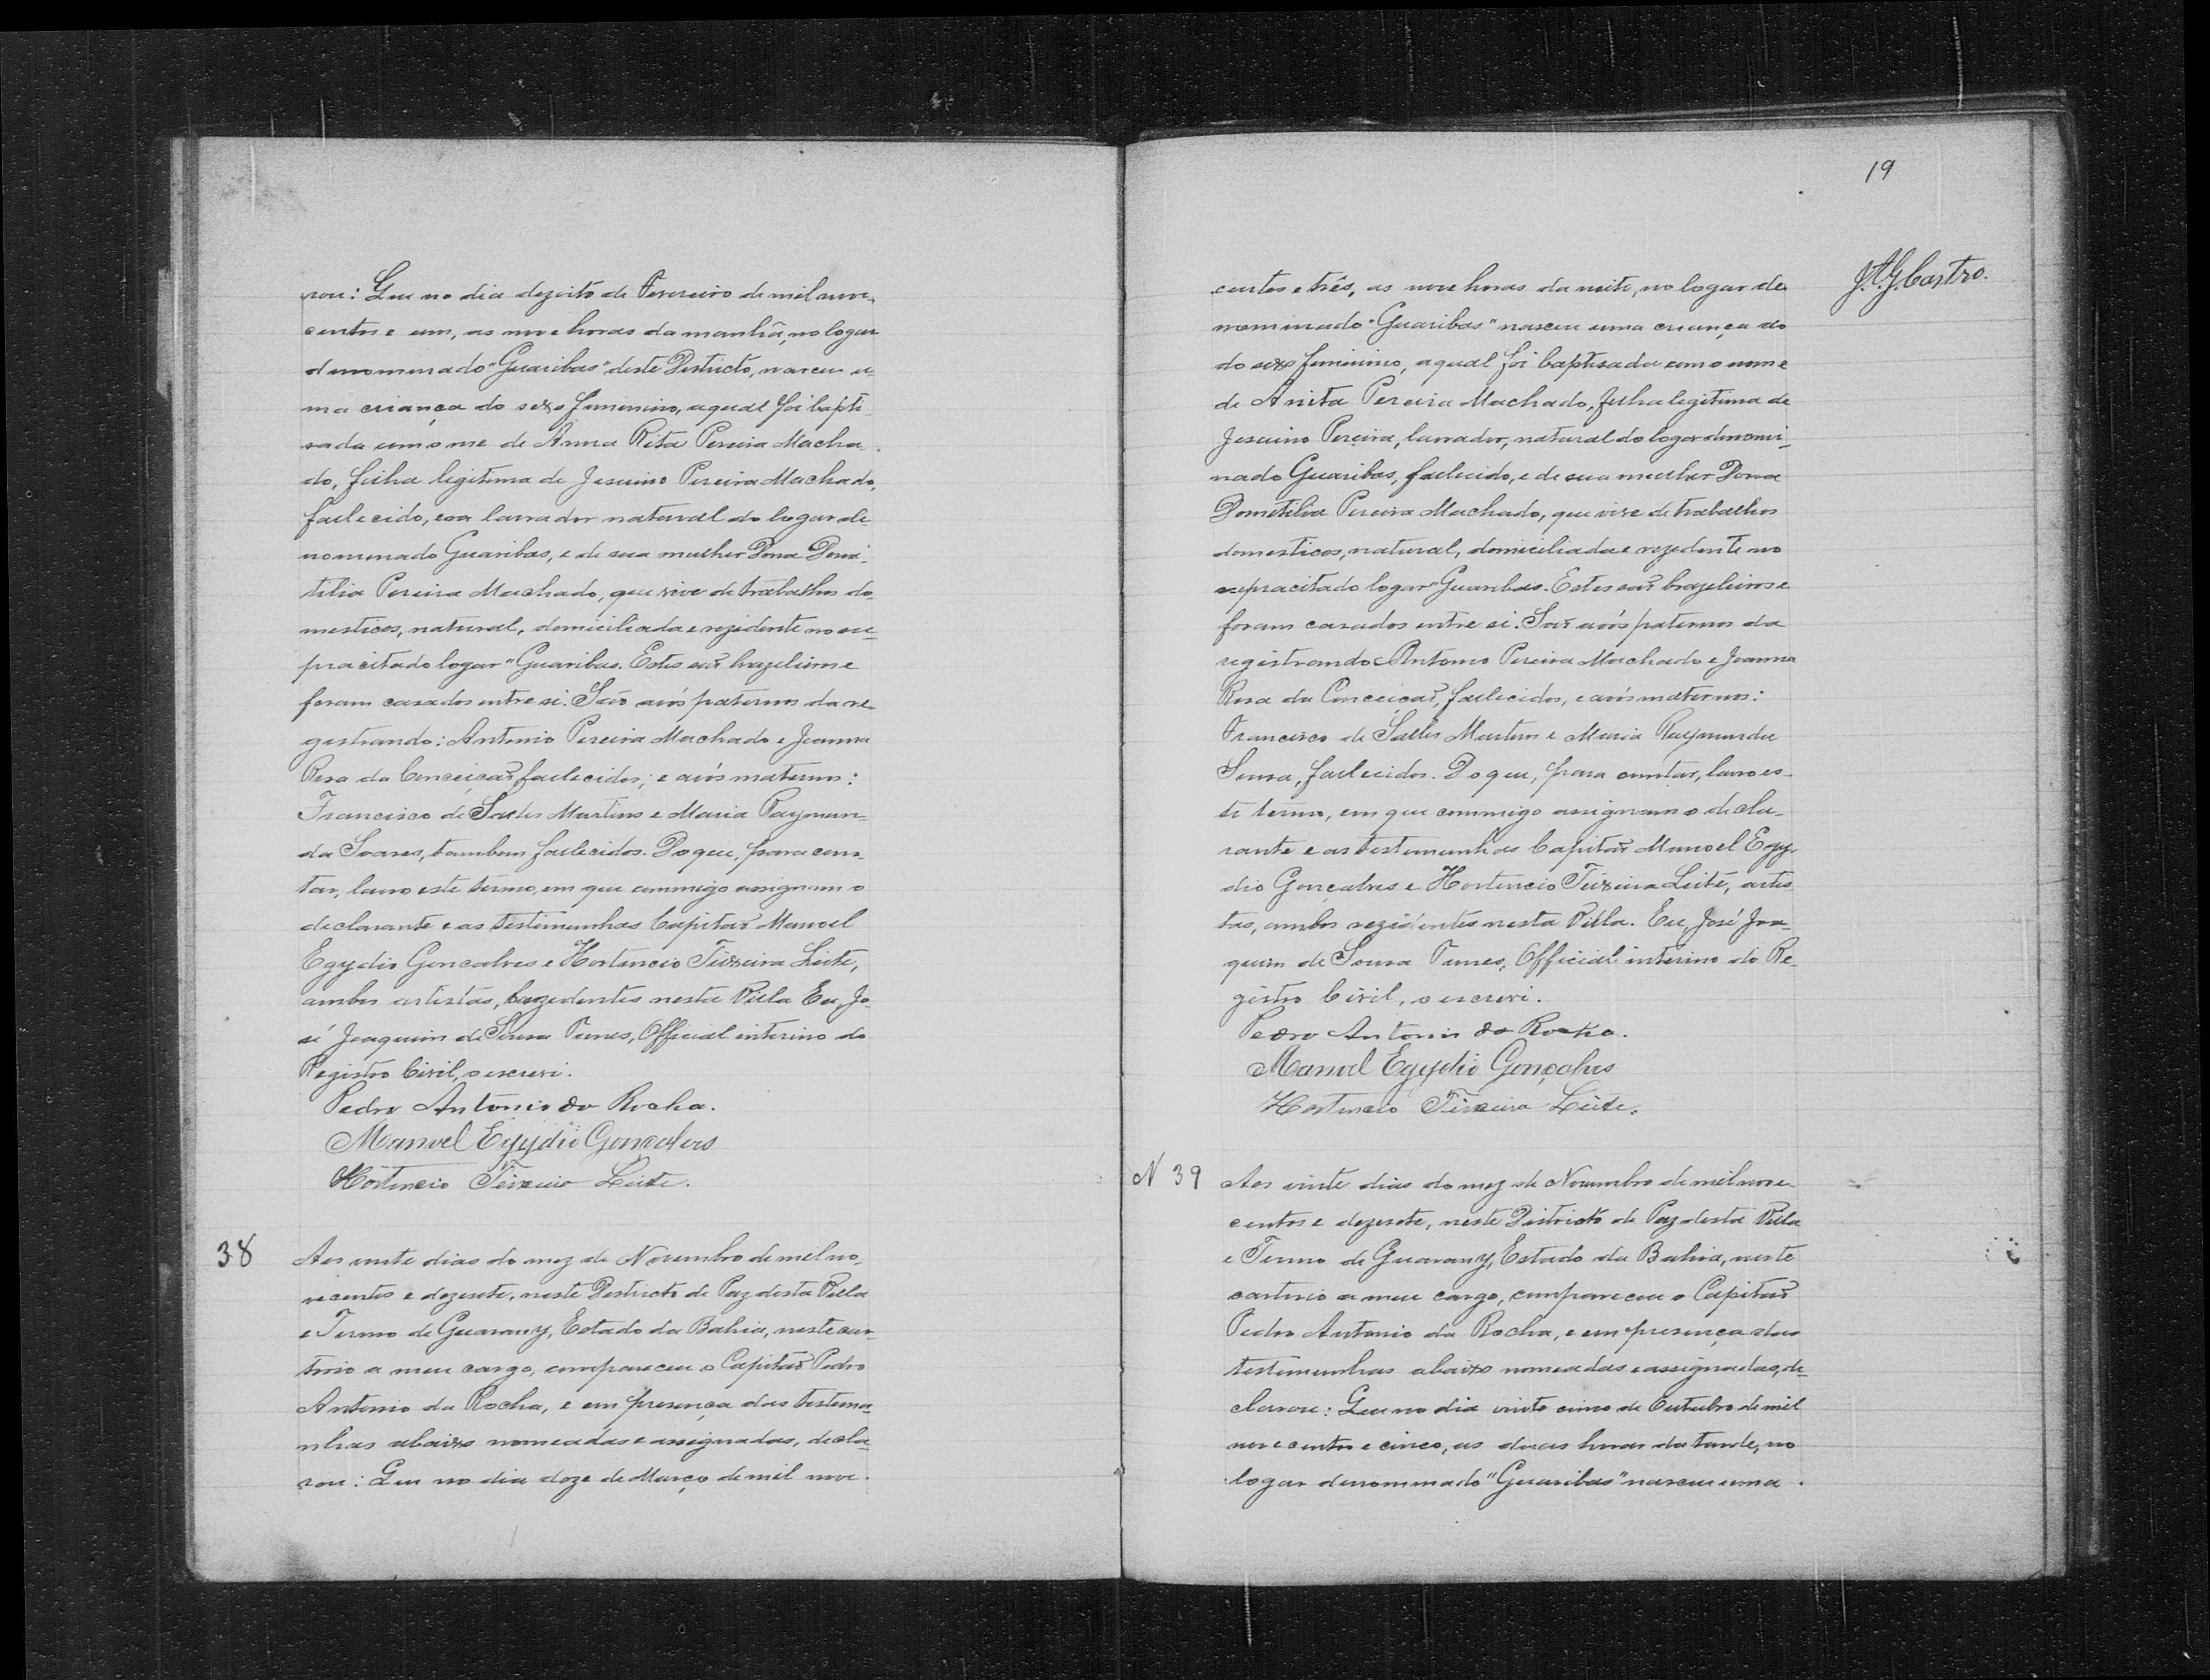 rou: Que no dia dezoito de Fevereiro de mil nove-
centos e um, as nove horas da manhã, no logar
denominado "Guaribas" deste Districto, nasceu u-
ma criança do sexo femenino, a qual foi bapti-
sada com o nome de Anna Rita Pereira Macha-
do, filha legitima de Jesuino Pereira Machado,
fallecido, era lavrador natural do logar de-
nominado Guaribas, e de sua mulher Dona Domi-
tilia Pereira Machado, que vive de trabalhos do-
mesticos, natural, domiciliada e rezidente no su-
pracitado logar "Guaribas. Estes são brazeliros e
foram casados entre si. São avós paternos da re-
gistrando: Antonio Pereira Machado e Joanna
Rosa da Conceição, fallecidos; e avós maternos:
Francisco de Salles Martins e Maria Raymun-
da Soares, tambem fallecidos. Do que, para cons-
tar, lavro este termo, em que commigo assignam o
declarante e as testimunhas Capitão Manoel
Egydio Goncalves e Hortencio Teixeira Leite,
ambos artistas, rezedentes nesta Villa Eu, Jo-
sé Joaquim de Sousa Tunes, Official interino do
Registro Civil, o escrevi.
Pedro Antonio da Rocha.
Manoel Egydio Gonçalves
Hortencio Teixeira Leite.
38 Aos vinte dias do mez de Novembro de mil no-
vecentos e dezesete, neste Districto de Paz desta Villa
e Termo de Guarany, Estado da Bahia, neste car-
torio a meu cargo, compareceu o Capitão Pedro
Antonio da Rocha, e em presença das testemu-
nhas abaixo nomeadas e assignadas, decla-
rou: Que no dia doze de Março de mil nove-
19
J. A. G. Castro.
centos e três, as nove horas da noite, no logar de-
nominado "Guaribas" nasceu uma criança do
do sexo femenino, a qual foi baptisada com o nome
de Anita Pereira Machado, filha legitima de
Jesuino Pereira, lavrador, natural do logar denomi-
nado Guaribas, fallecido, e de sua mulher Dona
Dometilia Pereira Machado, que vive de trabalhos
domesticos, natural, domiciliada e rezedente no
supracitado logar "Guaribas. Estes são brazeliros e
foram casados entre si. São avós paternos da
registrando Antonio Pereira Machado e Joanna
Rosa da Conceição, fallecidos, e avós maternos:
Francisco de Salles Martins e Maria Raymunda
Soares, fallecidos. Do que, para constar, lavro es-
te termo, em que commigo assignam o decla-
rante e as testemunhas Capitão Manoel Egy-
dio Gonçalves e Hortencio Teixeira Leite, artis-
tas, ambos rezidentes nesta Villa. Eu, José Joa-
quim de Sousa Tunes, Official interino do Re-
gistro Civil, o escrevi.
Pedro Antonio da Rocha.
Manoel Egydio Gonçalves
Hortencio Teixeira Leite.
N 39 Aos vinte dias do mez de Novembro de mil nove-
centos e dezesete, neste Districto de Paz desta Villa
e Termo de Guarany, Estado da Bahia, neste
cartorio a meu cargo, compareceu o Capitão
Pedro Antonio da Rocha, e em presença das
testimunhas abaixo nomeadas e assignadas, de-
clarou: Que no dia vinte cinco de Outubro de mil
novecentos e cinco, as duas horas da tarde, no
logar denominado "Guaribas" nasceu uma